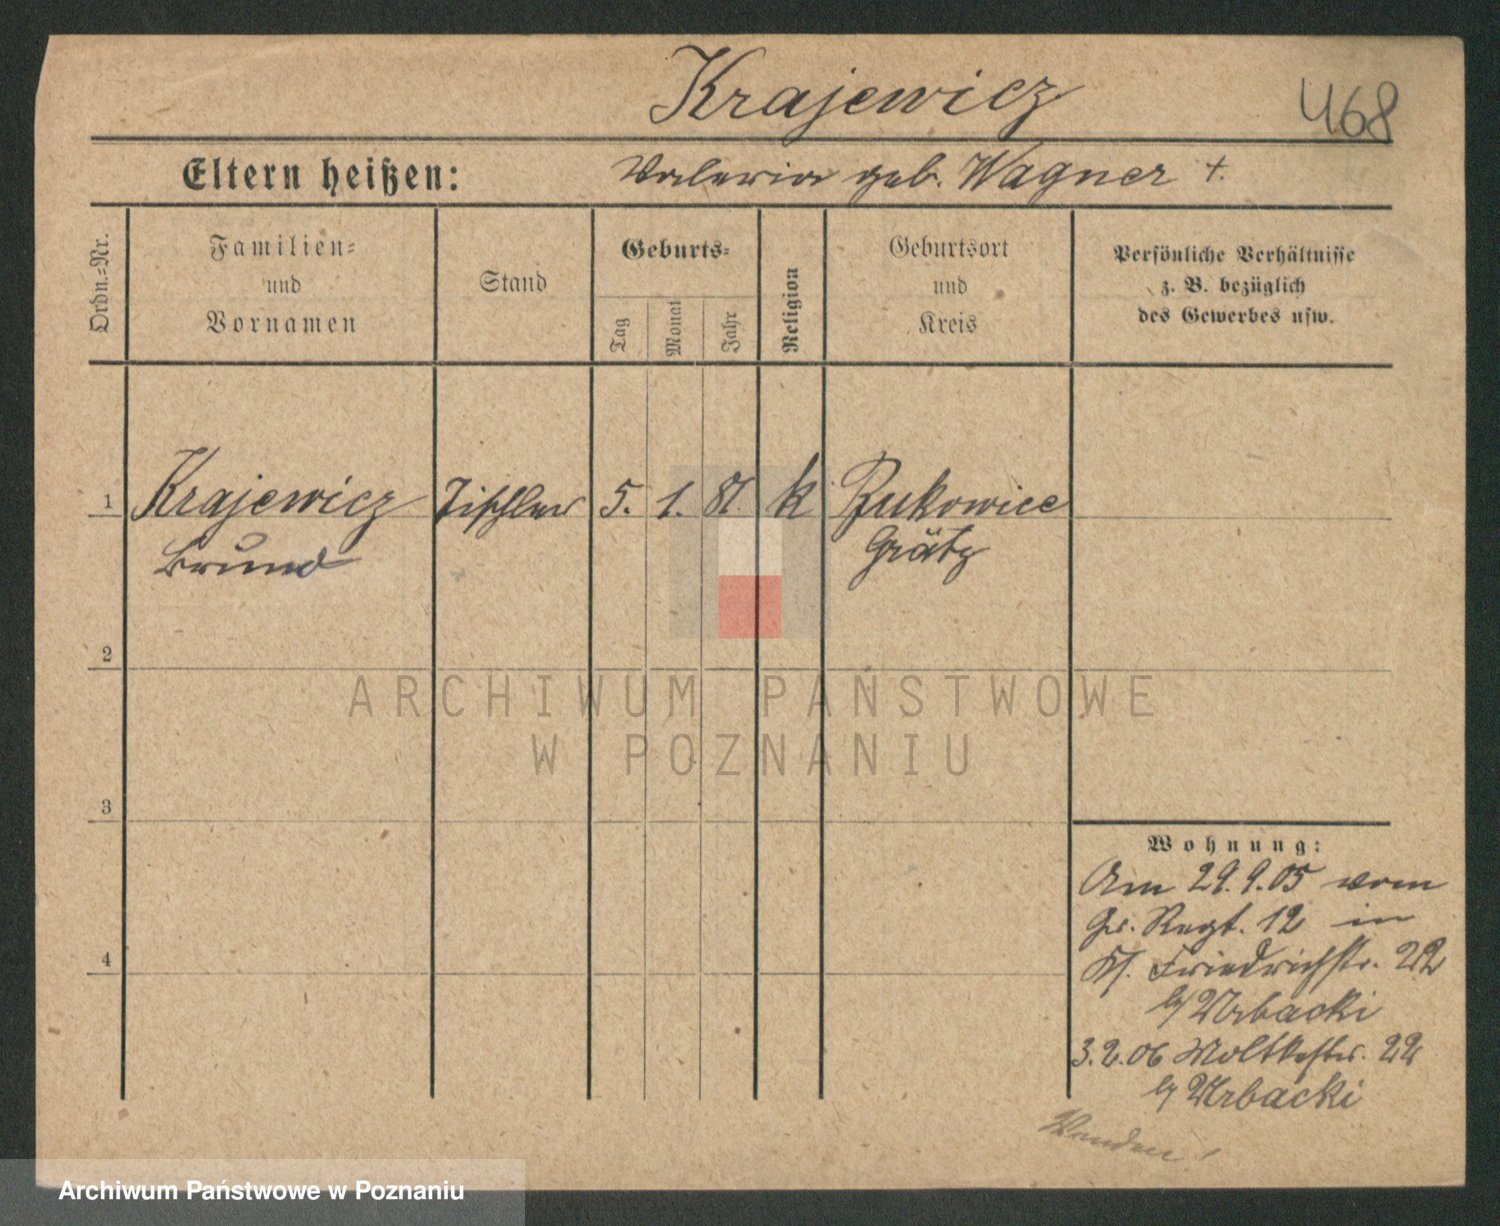 Krajewicz
468
Eltern heißen:
Valeria geb. Wagner +.
Ordn.-Nr.
Familien-
und
Vornamen
Stand
Geburts-
Tag
Monat
Jahr
Religion
Geburtsort
und
Kreis
Persönliche Verhältnisse
z. B. bezüglich
des Gewerbes usw.
1
Krajewicz
Tischler
5.
1.
81.
k
Bukowiec
Bruno
Grätz
2
ARCHIWUM PAŃSTWOWE
W POZNANIU
3
Wohnung:
Am 29.9.05 vom
Gr. Regt. 12 in
Kl. Friedrichstr. 22
b/ Urbacki
4
3.2.06 Moltkestr. 22
b/ Urbacki
Wenden!
Archiwum Państwowe w Poznaniu